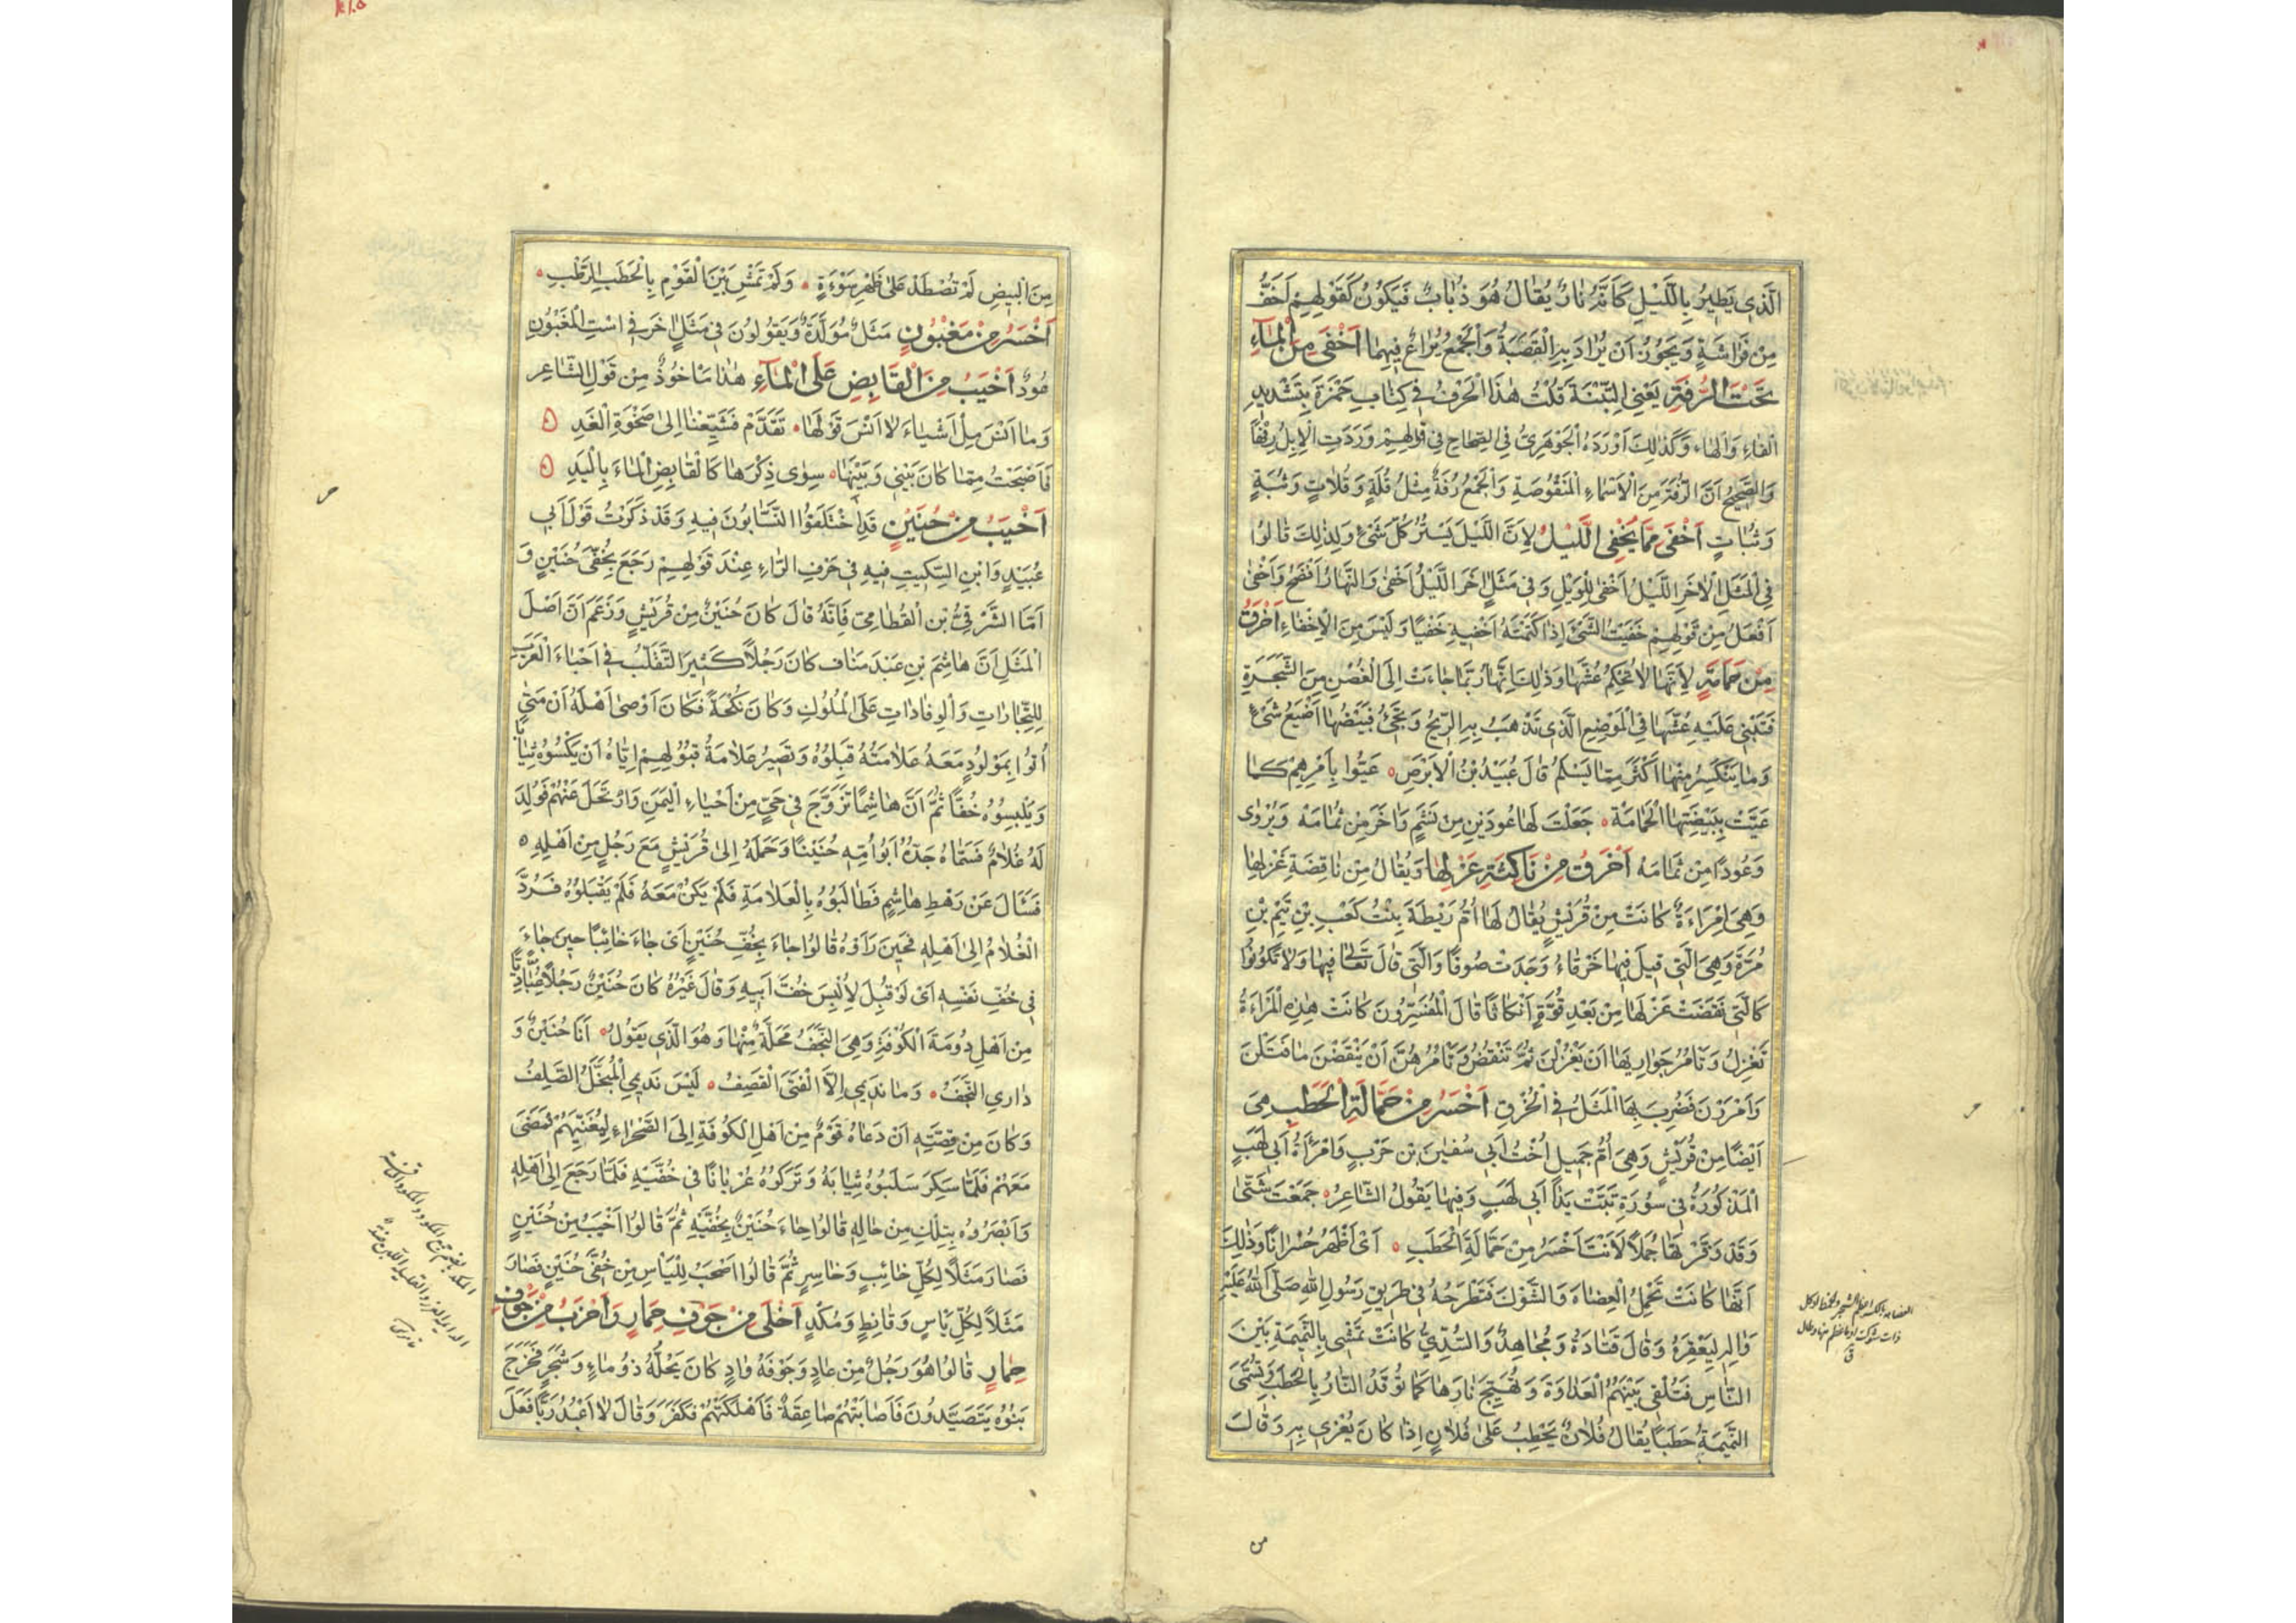 الَّذِي يَطِيرُ بِاللَّيْلِ كَأَنَّهُ نَارٌ يُقَالُ هُوَ ذُبَابٌ فَيَكُونُ كَقَوْلِهِمْ أَخَفُّ
مِنْ فَرَاشَةٍ وَيَجُوزُ أَنْ يُرَادَ بِهِ الْقَصَبَةُ وَالْجَمْعُ يَرَاعٌ فِيهِمَا أَخْفَى مِنَ الْمَاءِ
تَحْتَ الرُّفَةِ يَعْنِي التِّبْنَةَ قُلْتُ هٰذَا الْحَرْفُ فِي كِتَابِ حَمْزَةَ بِتَشْدِيدِ
الْفَاءِ وَالْهَاء وَكَذٰلِكَ أَوْرَدَهُ الْجَوْهَرِيُّ فِي الصِّحَاحِ فِي قَوْلِهِمْ وَرَدَتِ الْإِبِلُ رِفْهًا
وَالصَّحِيحُ أَنَّ الرُّفَةَ مِنَ الْأَسْمَاءِ الْمَنْقُوصَةِ وَالْجَمْعُ رُفَةٌ مِثْلُ قُلَةٍ وَقُلَاتٍ وَثُبَةٍ
وَثُبَاتٍ أَخْفَى مِمَّا يُخْفِي اللَّيْلُ لِأَنَّ اللَّيْلَ يَسْتُرُ كُلَّ شَيْءٍ وَلِذٰلِكَ قَالُوا
فِي الْمَثَلِ الْآخَرِ اللَّيْلُ أَخْفَى لِلْوَيْلِ وَفِي مَثَلٍ آخَرَ اللَّيْلُ أَخْفَى وَالنَّهَارُ أَفْضَحُ وَأَخْفَى
أَفْعَلُ مِنْ قَوْلِهِمْ خَفَيْتُ الشَّيْءَ إِذَا كَتَمْتَهُ أَخْفِيهِ خَفْيًا وَلَيْسَ مِنَ الْإِخْفَاءِ أَخْرَقُ
مِنْ حَمَامَةٍ لِأَنَّهَا لَا تُحْكِمُ عُشَّهَا وَذٰلِكَ أَنَّهَا رُبَّمَا جَاءَتْ إِلَى الْغُصْنِ مِنَ الشَّجَرَةِ
فَتَبْنِي عَلَيْهِ عُشَّهَا فِي الْمَوْضِعِ الَّذِي تَذْهَبُ بِهِ الرِّيحُ وَتَجِيءُ فَبَيْضُهَا أَضْيَعُ شَيْءٍ
وَمَا يَنْكَسِرُ مِنْهَا أَكْثَرُ مِمَّا يَسْلَمُ قَالَ عُبَيْدُ بْنُ الْأَبْرَصِ ۰ عَيُّوا بِأَمْرِهِمْ كَمَا
عَيَّتْ بِبَيْضَتِهَا الْحَمَامَهْ ۰ جَعَلَتْ لَهَا عُودَيْنِ مِنْ نَشَمٍ وَآخَرَ مِنْ ثُمَامَهْ وَيُرْوَى
وَعُودًا مِنْ ثُمَامَهْ أَخْرَقُ مِنْ نَاكِثَةِ غَزْلِهَا وَيُقَالُ مِنْ نَاقِضَةِ غَزْلِهَا
وَهِيَ امْرَاءَةٌ كَانَتْ مِنْ قُرَيْشٍ يُقَالُ لَهَا أُمُّ رَيْطَةَ بِنْتُ كَعْبِ بْنِ تَيْمِ بْنِ
مُرَّةَ وَهِيَ الَّتِي قِيلَ فِيهَا خَرْقَاءُ وَجَدَتْ صُوفًا وَالَّتِي قَالَ تَعَالَى فِيهَا وَلَا تَكُونُوا
كَالَّتِي نَقَضَتْ غَزْلَهَا مِنْ بَعْدِ قُوَّةٍ أَنْكَاثًا قَالَ الْمُفَسِّرُونَ كَانَتْ هٰذِهِ الْمَرْاءَةُ
تَغْزِلُ وَتَأْمُرُ جَوَارِيهَا أَنْ يَغْزِلْنَ ثُمَّ تَنْقُضُ وَتَأْمُرُهُنَّ أَنْ يَنْقُضْنَ مَا فَتَلْنَ
وَأَمْرَرْنَ فَضُرِبَ بِهَا الْمَثَلُ فِي الْخُرْقِ أَخْسَرُ مِنْ حَمَّالَةِ الْحَطَبِ هِيَ
أَيْضًا مِنْ قُرَيْشٍ وَهِيَ أُمُّ جَمِيلٍ أُخْتُ أَبِي سُفْيٰنَ بْنِ حَرْبٍ وَامْرَأَةُ أَبِي لَهَبٍ
الْمَذْكُورَةُ فِي سُورَةِ تَبَّتْ يَدَا أَبِي لَهَبٍ وَفِيهَا يَقُولُ الشَّاعِرُ ۰ جَمَعْتَ شَتَّى
وَقَدْ فَرَّقْتَهَا جُمَلًا لَأَنْتَ أَخْسَرُ مِنْ حَمَّالَةِ الْحَطَبِ ۰ أَيْ أَظْهَرُ خُسْرَانًا وَذٰلِكَ
أَنَّهَا كَانَتْ تَحْمِلُ الْعِضَاهَ وَالشَّوْكَ فَتَطْرَحُهُ فِي طَرِيقِ رَسُولِ اللهِ صَلَّى اللهُ عَلَيْهِ
وَآلِهِ لِيَعْقِرَهُ وَقَالَ قَتَادَةُ وَمُجَاهِدٌ وَالسُّدِّيُّ كَانَتْ تَمْشِي بِالنَّمِيمَةِ بَيْنَ
النَّاسِ فَتُلْقِي بَيْنَهُمُ الْعَدَاوَةَ وَتُهَيِّجُ نَارَهَا كَمَا تُوقَدُ النَّارُ بِالْحَطَبِ وَتُسَمَّى
النَّمِيمَةُ حَطَبًا يُقَالُ فُلَانٌ يَحْطِبُ عَلَى فُلَانٍ إِذَا كَانَ يُغْرِي بِهِ وَقَالَ
من
مِنَ الْبِيضِ لَمْ تُصْطَدْ عَلَى ظَهْرِ سَوْءَةٍ ۰ وَلَمْ تَمْشِ بَيْنَ الْقَوْمِ بِالْحَطَبِ الرَّطْبِ ۰
أَخْسَرُ مِنْ مَغْبُونٍ مَثَلٌ مُوَلَّدٌ وَيَقُولُونَ فِي مَثَلٍ آخَرَ فِي اسْتِ الْمَغْبُونِ
عُودٌ أَخْيَبُ مِنَ الْقَابِضِ عَلَى الْمَاءِ هٰذَا مَأْخُوذٌ مِنْ قَوْلِ الشَّاعِرِ
وَمَا أَنْسَ مِلْ أَشْيَاءَ لَا أَنْسَ قَوْلَهَا ۰ تَقَدَّمْ فَشَيِّعْنَا إِلَى ضَحْوَةِ الْغَدِ ۵
فَأَصْبَحْتُ مِمَّا كَانَ بَيْنِي وَبَيْنَهَا ۰ سِوَى ذِكْرِهَا كَالْقَابِضِ الْمَاءَ بِالْيَدِ ۵
أَخْيَبُ مِنْ حُنَيْنٍ قَدِ اخْتَلَفُوا النَّسَّابُونَ فِيهِ وَقَدْ ذَكَرْتُ قَوْلَ أَبِي
عُبَيْدٍ وَابْنِ السِّكِّيتِ فِيهِ فِي حَرْفِ الرَّاءِ عِنْدَ قَوْلِهِمْ رَجَعَ بِخُفَّيْ حُنَيْنٍ وَ
أَمَّا الشَّرْقِيُّ بْنِ الْقُطَامِيِّ فَإِنَّهُ قَالَ كَانَ حُنَيْنٌ مِنْ قُرَيْشٍ وَزَعَمَ أَنَّ أَصْلَ
الْمَثَلِ أَنَّ هَاشِمَ بْنِ عَبْدِ مَنَافٍ كَانَ رَجُلًا كَثِيرَ التَّقَلُّبِ فِي أَحْيَاءِ الْعَرَبِ
لِلتِّجَارَاتِ وَالْوِفَادَاتِ عَلَى الْمُلُوكِ وَكَانَ نُكَحَةً فَكَانَ أَوْصَى أَهْلَهُ أَنْ مَتَى
أُتُوا بِمَوْلُودٍ مَعَهُ عَلَامَتُهُ قَبِلُوهُ وَتَصِيرُ عَلَامَةُ قَبُولِهِمْ إِيَّاهُ أَنْ يَكْسُوهُ ثِيَابًا
وَيُلْبِسُوهُ خُفًّا ثُمَّ أَنَّ هَاشِمًا تَزَوَّجَ فِي حَيٍّ مِنْ أَحْيَاءِ الْيَمَنِ وَارْتَحَلَ عَنْهُمْ فَوُلِدَ
لَهُ غُلَامٌ فَسَمَّاهُ جَدُّهُ أَبُو أُمِّهِ حُنَيْنًا وَحَمَلَهُ إِلَى قُرَيْشٍ مَعَ رَجُلٍ مِنْ أَهْلِهِ ۵
فَسَئَالَ عَنْ رَهْطِ هَاشِمٍ فَطَالَبُوهُ بِالْعَلَامَةِ فَلَمْ يَكُنْ مَعَهُ فَلَمْ يَقْبَلُوهُ فَرُدَّ
الْغُلَامُ إِلَى أَهْلِهِ فَحِينَ رَأَوْهُ قَالُوا جَاءَ بِخُفِّ حُنَيْنٍ أَيْ جَاءَ خَائِبًا حِينَ جَاءَ
فِي خُفِّ نَفْسِهِ أَيْ لَوْ قُبِلَ لَأُلْبِسَ خُفَّ أَبِيهِ وَقَالَ غَيْرُهُ كَانَ حُنَيْنٌ رَجُلًا عِبَادِيًّا
مِنْ أَهْلِ دُومَةَ الْكُوفَةِ وَهِيَ النَّجَفُ مَحَلَّةٌ مِنْهَا وَهُوَ الَّذِي يَقُولُ ۰ أَنَا حُنَيْنٌ وَ
دَارِي النَّجَفُ ۰ وَمَا نَدِيمِي إِلَّا الْفَتَى الْقَصِفُ ۰ لَيْسَ نَدِيمِي الْمُبَخَّلُ الصَّلِفُ
وَكَانَ مِنْ قِصَّتِهِ أَنْ دَعَاهُ قَوْمٌ مِنْ أَهْلِ الْكُوفَةِ إِلَى الصَّحْرَاءِ لِيُغَنِّيَهُمْ فَمَضَى
مَعَهُمْ فَلَمَّا سَكِرَ سَلَبُوهُ ثِيَابَهُ وَتَرَكُوهُ عُرْيَانًا فِي خُفَّيْهِ فَلَمَّا رَجَعَ إِلَى أَهْلِهِ
وَأَبْصَرُوهُ بِتِلْكَ مِنْ حَالِهِ قَالُوا جَاءَ حُنَيْنٌ بِخُفَّيْهِ ثُمَّ قَالُوا أَخْيَبُ مِنْ حُنَيْنٍ
فَصَارَ مَثَلًا لِكُلِّ خَائِبٍ وَخَاسِرٍ ثُمَّ قَالُوا أَصْحَبُ لِلْيَأْسِ مِنْ خُفَّيْ حُنَيْنٍ فَصَارَ
مَثَلًا لِكُلِّ يَأْسٍ وَقَانِطٍ وَمُكْدٍ أَخْلَى مِنْ جَوْفِ حِمَارٍ وَأَخْرَبُ مِنْ جَوْفِ
حِمَارٍ قَالُوا هُوَ رَجُلٌ مِنْ عَادٍ وَجَوْفَهُ وَادٍ كَانَ يَحُلُّهُ ذُو مَاءٍ وَشَجَرٍ فَخَرَجَ
بَنُوهُ يَتَصَيَّدُونَ فَأَصَابَتْهُمْ صَاعِقَةٌ فَأَهْلَكَتْهُمْ فَكَفَرَ وَقَالَ لَا أَعْبُدُ رَبًّا فَعَلَ